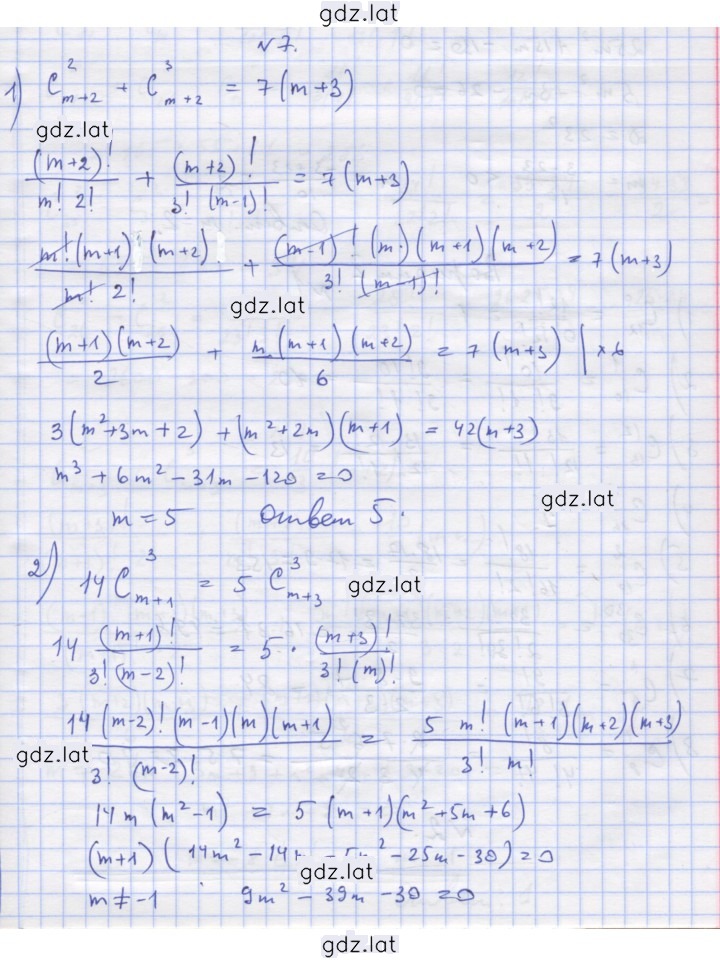 gdz.lat
№7.
1) C²ₘ₊₂ + C³ₘ₊₂ = 7(m+3)
gdz.lat
(m+2)!/(m! 2!) + (m+2)!/(3! (m-1)!) = 7(m+3)
m!(m+1)(m+2)/(m! 2!) + (m-1)!(m)(m+1)(m+2)/(3! (m-1)!) = 7(m+3)
gdz.lat
(m+1)(m+2)/2 + m(m+1)(m+2)/6 = 7(m+3) | ×6
3(m²+3m+2) + (m²+2m)(m+1) = 42(m+3)
m³ + 6m² - 31m - 120 = 0
gdz.lat
m = 5 Ответ 5.
2) 14C³ₘ₊₁ = 5C³ₘ₊₃
gdz.lat
14 (m+1)!/(3!(m-2)!) = 5 · (m+3)!/(3!(m)!)
14(m-2)!(m-1)(m)(m+1)/(3! (m-2)!) = 5 m! (m+1)(m+2)(m+3)/(3! m!)
gdz.lat
14m(m²-1) = 5(m+1)(m²+5m+6)
(m+1)(14m² - 14m - 5m² - 25m - 30) = 0
gdz.lat
m ≠ -1 9m² - 39m - 30 = 0
gdz.lat